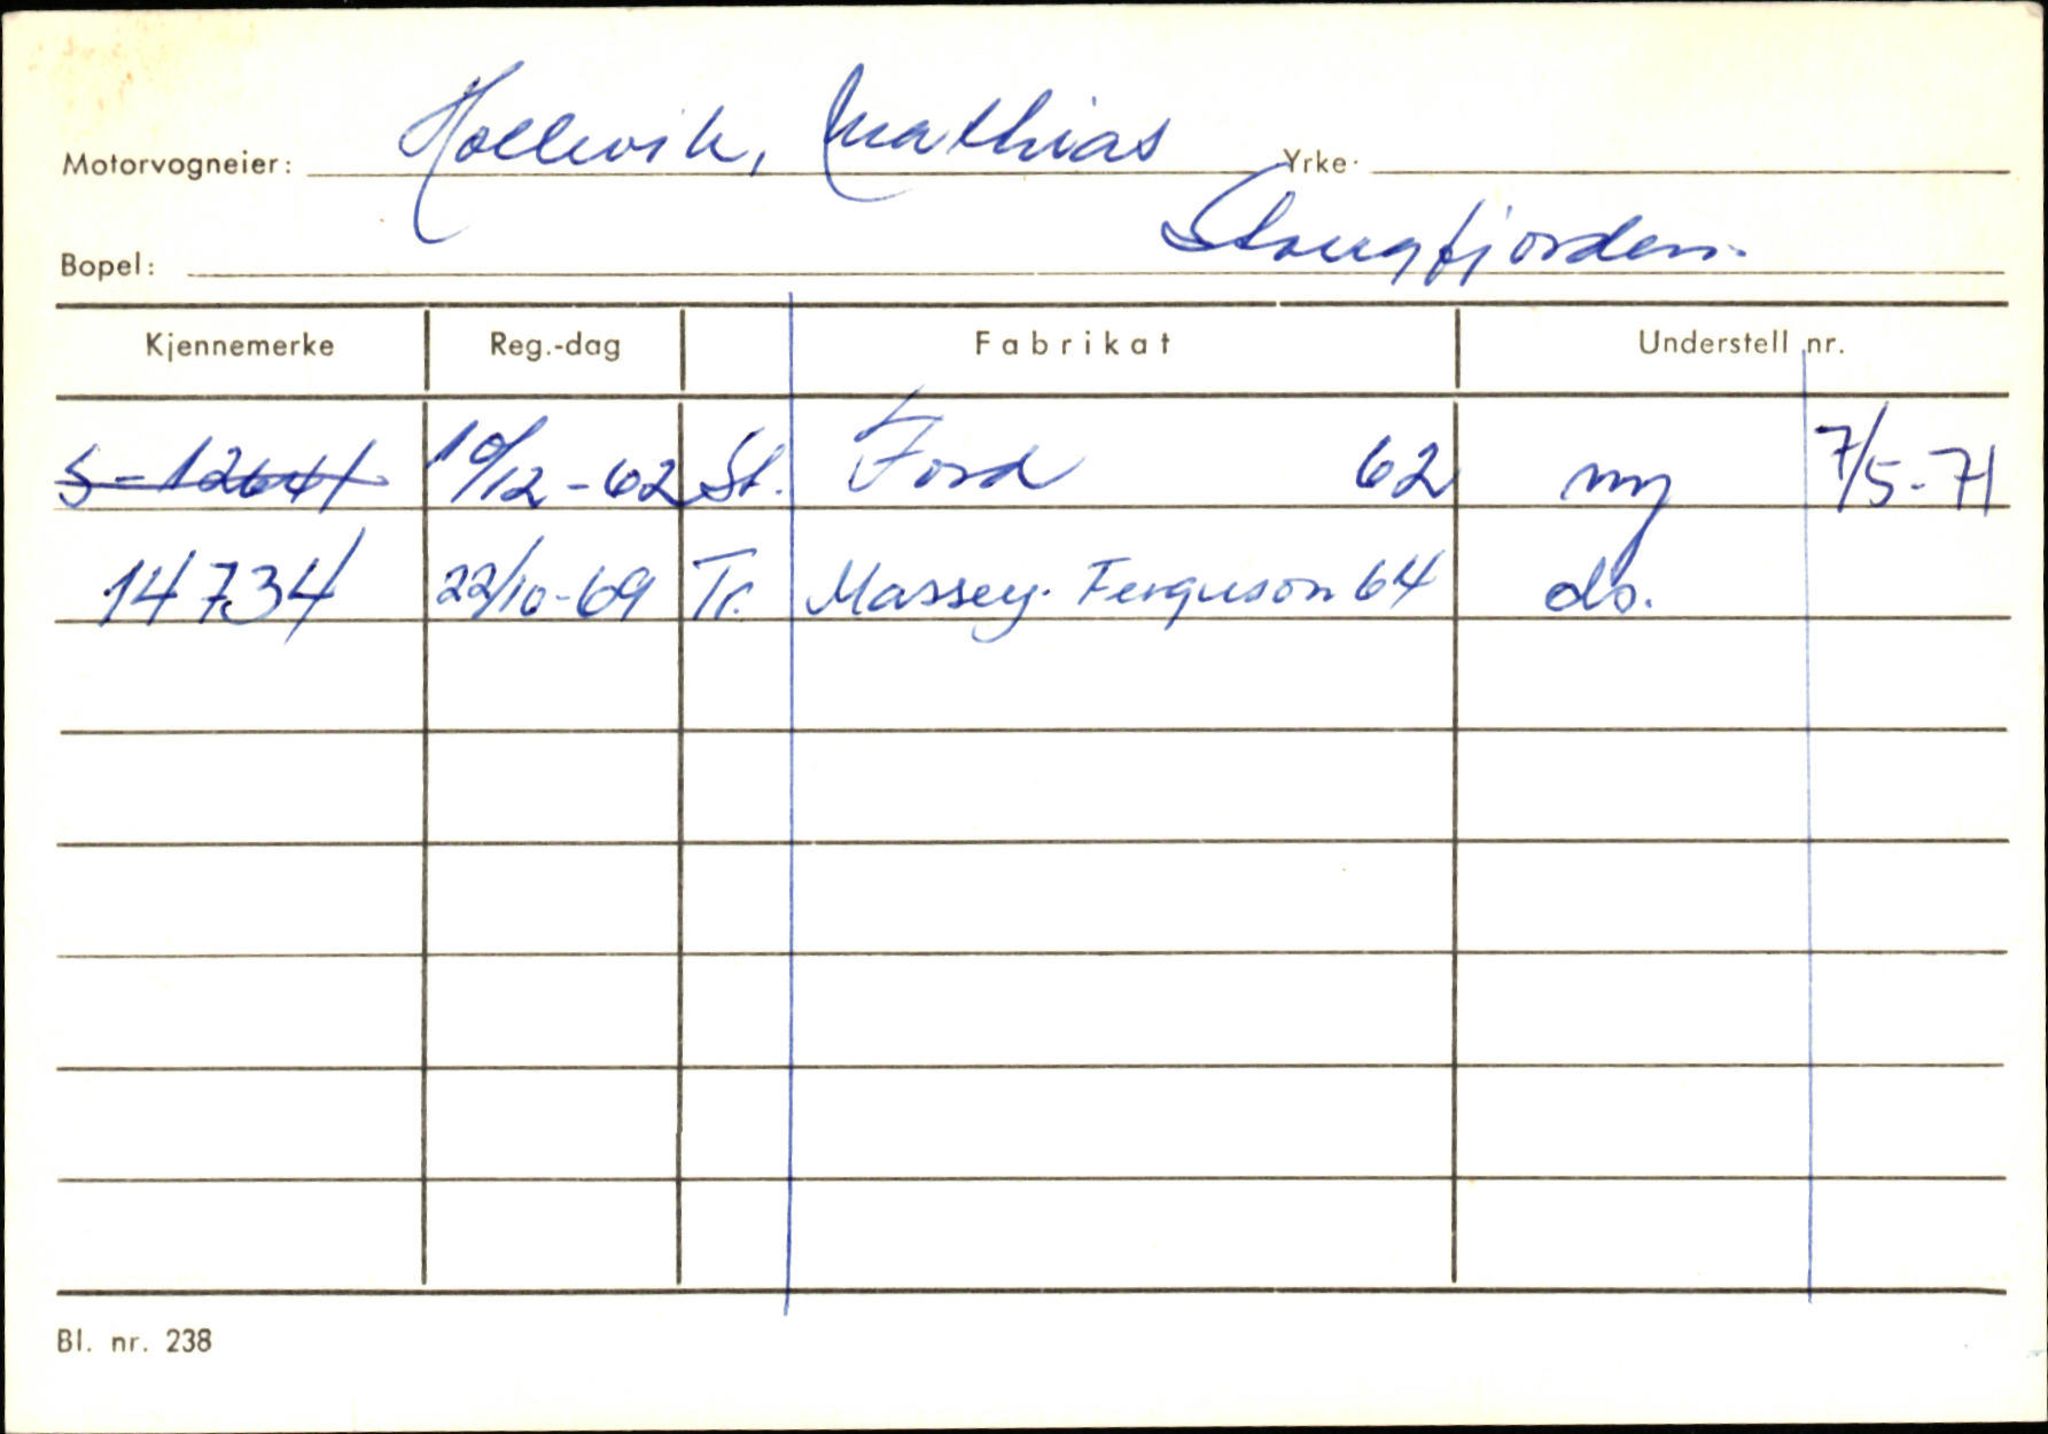 Motorvogneier: Hollevik, Mathias Yrke:
Bopel: Stongfjorden.
Kjennemerke Reg.-dag Fabrikat Understell nr.
S-12641 10/12-62 St. Ford 62 ny 7/5-71
14734 22/10-69 Tr. Massey-Ferguson 64 do.
Bl. nr. 238